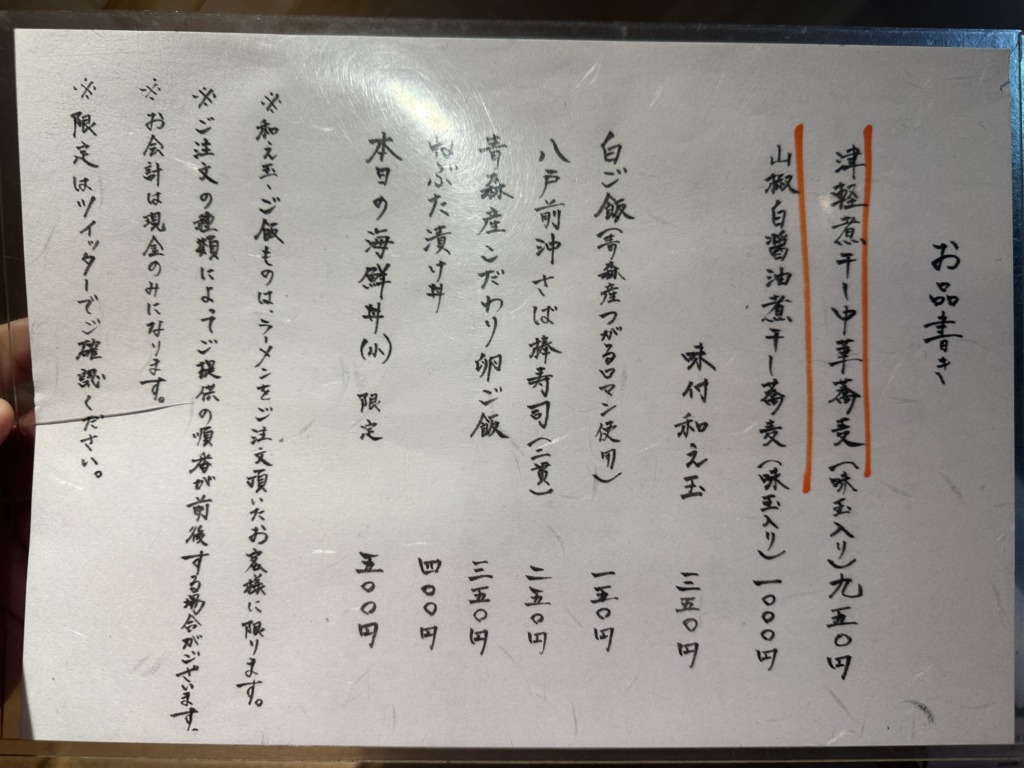 お品書き
津軽煮干し中華蕎麦（味玉入り）九五〇円
山椒白醤油煮干し蕎麦（味玉入り）一〇〇〇円
味付和え玉 三五〇円
白ご飯（青森産つがるロマン使用）一五〇円
八戸前沖さば棒寿司（二貫）二五〇円
青森産こだわり卵ご飯 三五〇円
ねぶた漬け丼 四〇〇円
本日の海鮮丼（小）限定 五〇〇円
※和え玉、ご飯ものは、ラーメンをご注文頂いたお客様に限ります。
※ご注文の種類によってご提供の順番が前後する場合がございます。
※お会計は現金のみになります。
※限定はツイッターでご確認ください。